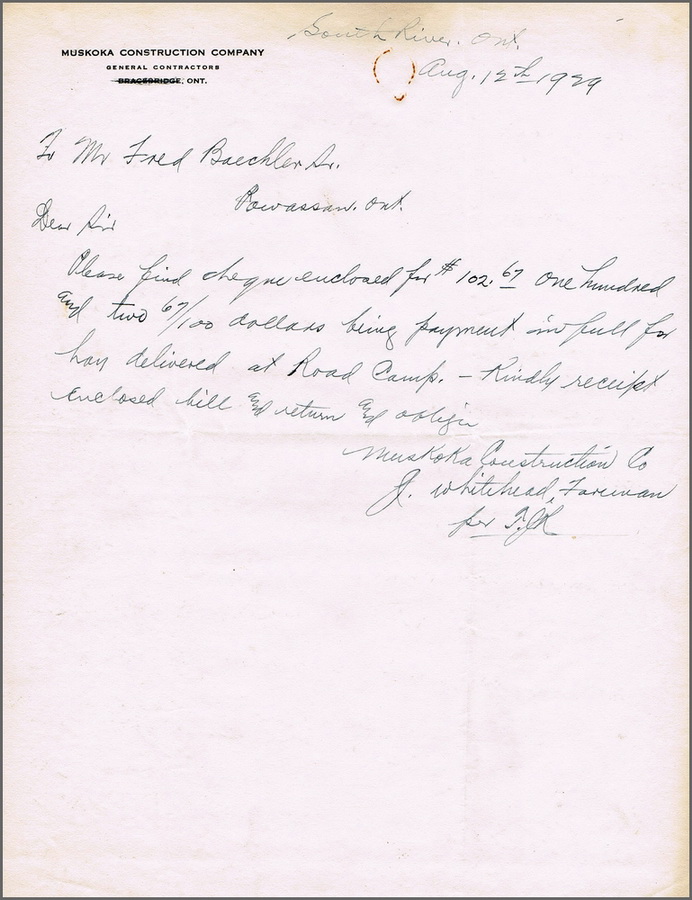 South River. Ont.
MUSKOKA CONSTRUCTION COMPANY
GENERAL CONTRACTORS
BRACEBRIDGE, ONT.
Aug. 12th 1929
To Mr Fred Baechler Sr.
Powassan. Ont.
Dear Sir
Please find cheque enclosed for $102.67 One hundred
and two 67/100 dollars being payment in full for
hay delivered at Road Camp. – Kindly receipt
enclosed bill and return and oblige
Muskoka Construction Co
J. Whitehead, Foreman
per